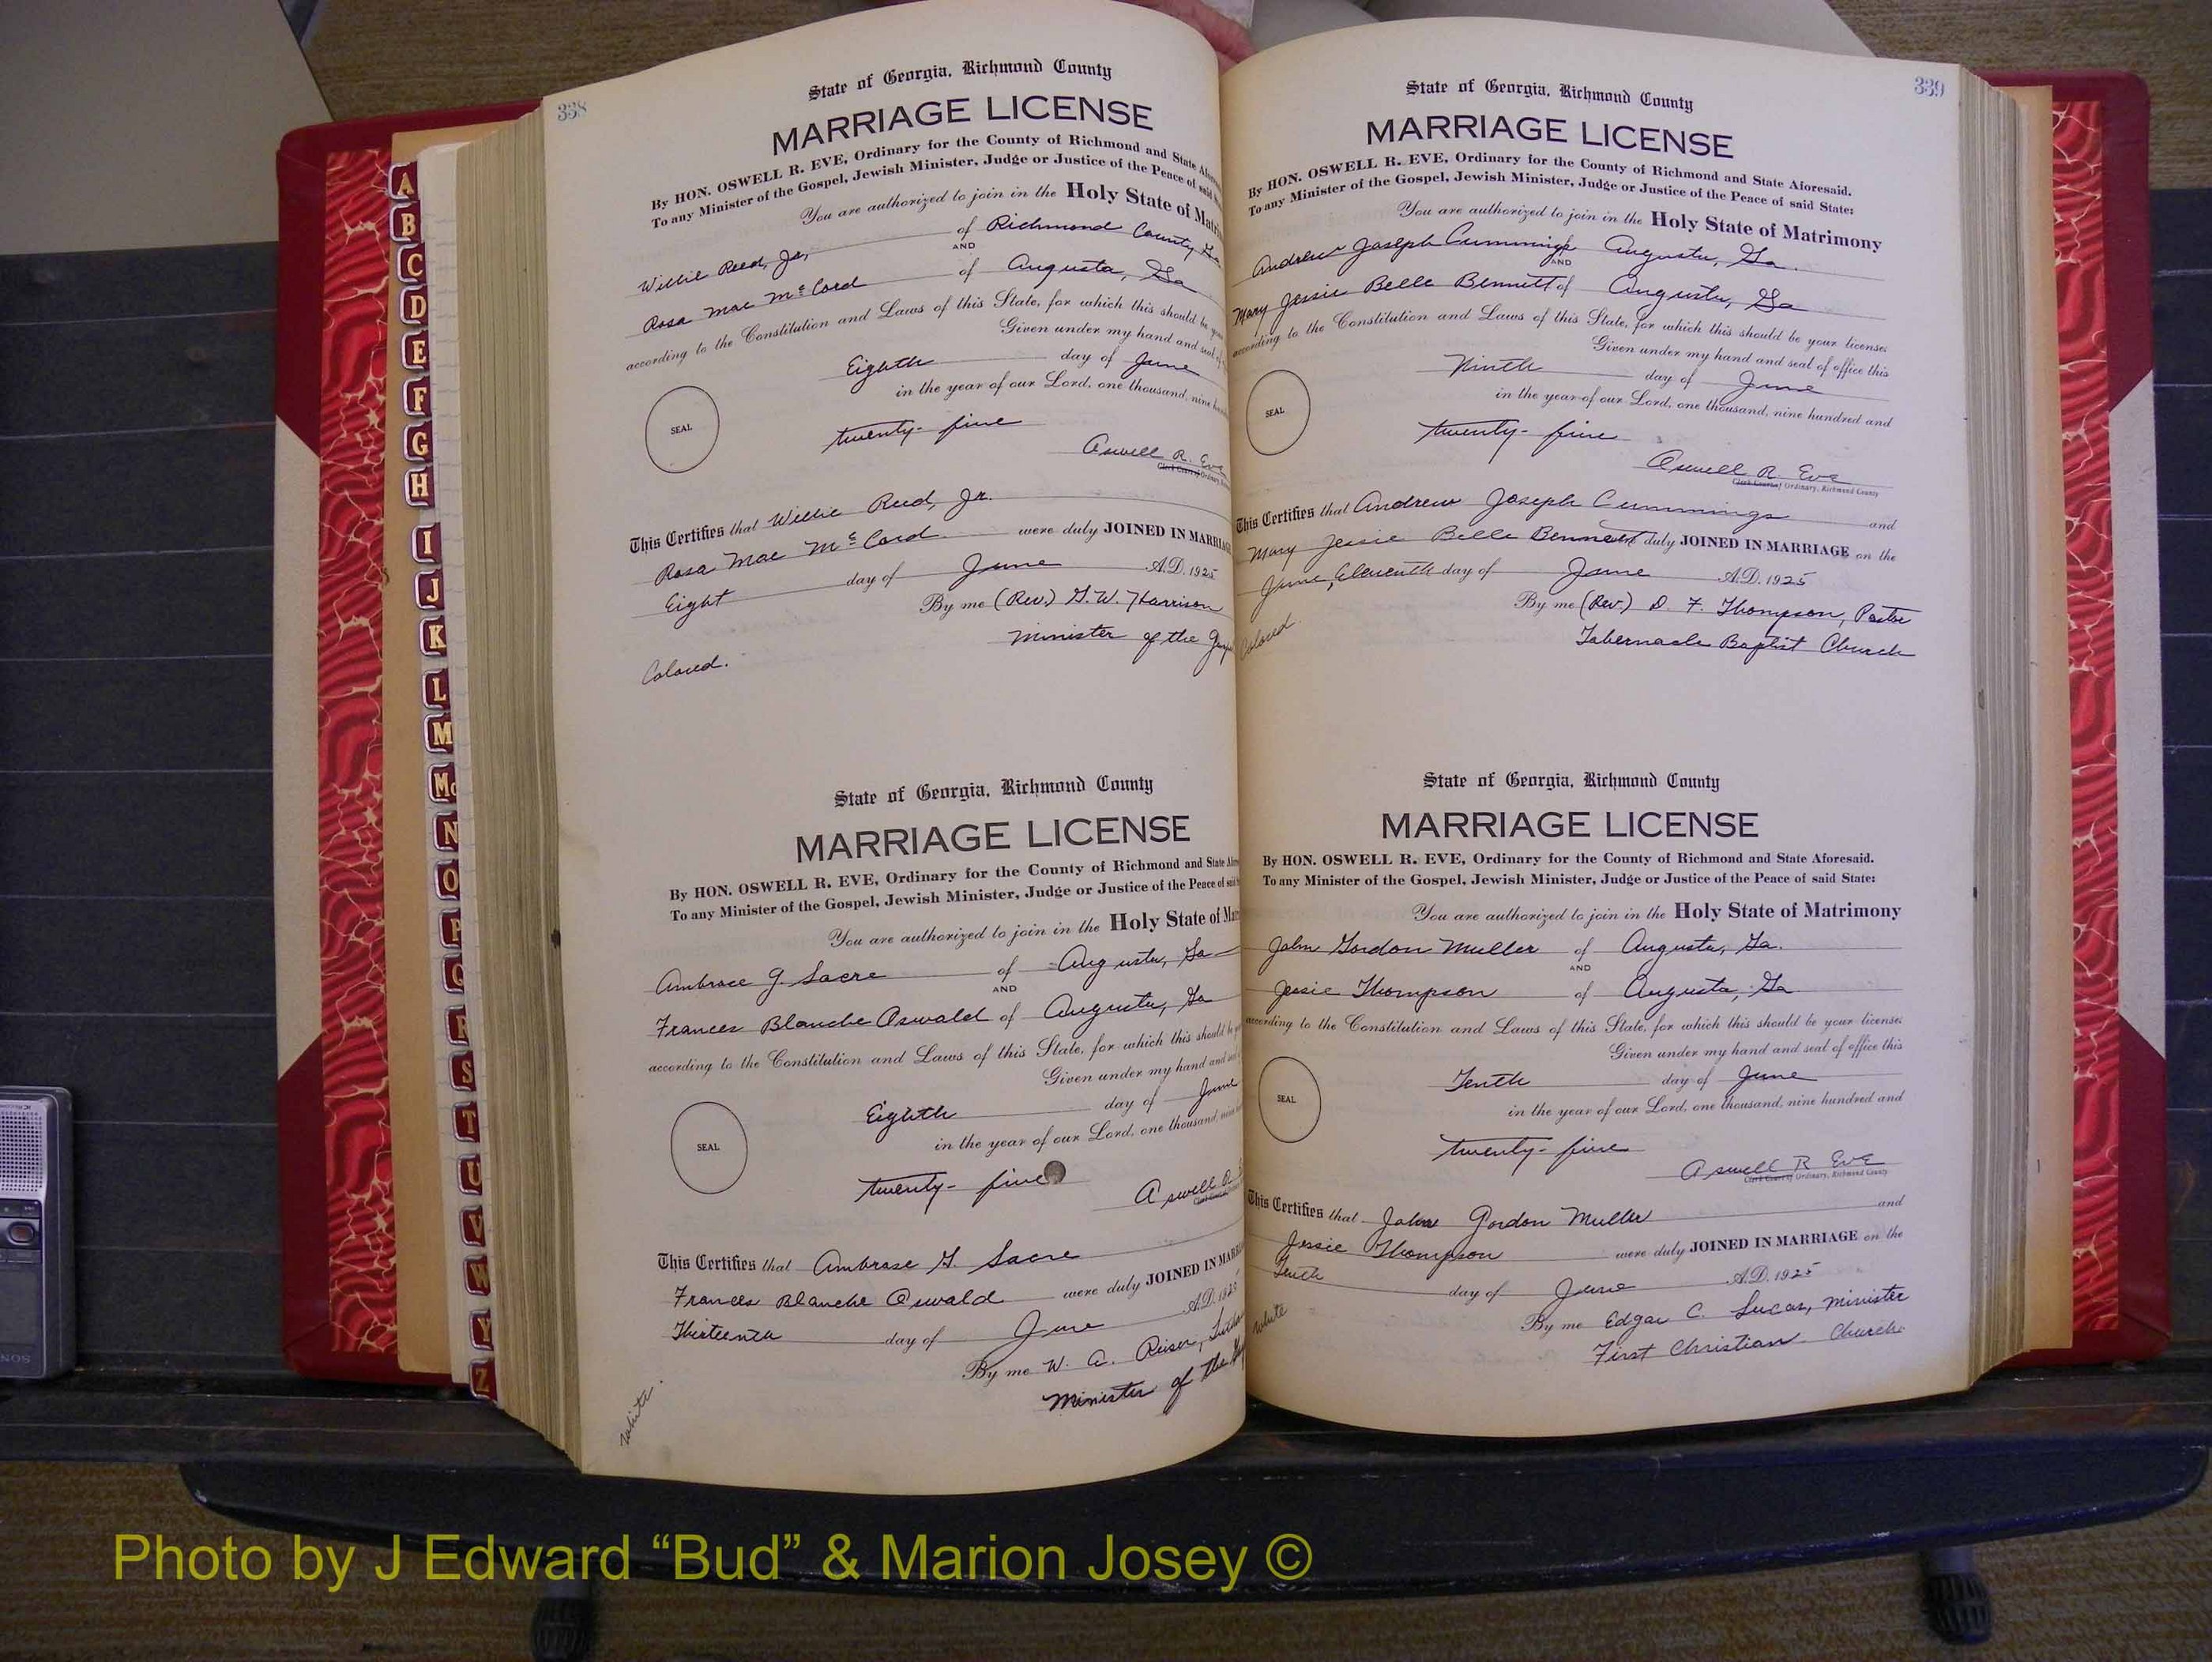 338
State of Georgia, Richmond County
MARRIAGE LICENSE
By HON. OSWELL R. EVE, Ordinary for the County of Richmond and State
To any Minister of the Gospel, Jewish Minister, Judge or Justice of the Peace of said
You are authorized to join in the Holy State of
Willie Reed, Jr, of Richmond County, Ga
AND
Rosa Mae McCord of Augusta, Ga
according to the Constitution and Laws of this State, for which this should be
Given under my hand and seal of
Eighth day of June
in the year of our Lord, one thousand, nine
SEAL
twenty-five
Oswell R. Eve
Clerk Court of Ordinary,
This Certifies that Willie Reed, Jr.
Rosa Mae McCord were duly JOINED IN MARRIAGE
Eight day of June A.D. 1925
By me (Rev.) G. W. Harrison
Minister of the
Colored.
State of Georgia, Richmond County
MARRIAGE LICENSE
By HON. OSWELL R. EVE, Ordinary for the County of Richmond and State
To any Minister of the Gospel, Jewish Minister, Judge or Justice of the Peace of
You are authorized to join in the Holy State of
Ambrose G. Sacre of Augusta, Ga
AND
Frances Blanche Oswald of Augusta, Ga
according to the Constitution and Laws of this State, for which this should be
Given under my hand and
Eighth day of June
in the year of our Lord, one thousand,
SEAL
twenty-five
Oswell R
This Certifies that Ambrose G. Sacre
Frances Blanche Oswald were duly JOINED IN
Thirteenth day of June A.D. 1925
By me W. A. Reiser,
Minister of the
White.
339
State of Georgia, Richmond County
MARRIAGE LICENSE
By HON. OSWELL R. EVE, Ordinary for the County of Richmond and State Aforesaid.
To any Minister of the Gospel, Jewish Minister, Judge or Justice of the Peace of said State:
You are authorized to join in the Holy State of Matrimony
Andrew Joseph Cummings Augusta, Ga.
AND
Mary Jessie Belle Bennett of Augusta, Ga
according to the Constitution and Laws of this State, for which this should be your license:
Given under my hand and seal of office this
Ninth day of June
in the year of our Lord, one thousand, nine hundred and
SEAL
twenty-five
Oswell R. Eve
Clerk Court of Ordinary, Richmond County
This Certifies that Andrew Joseph Cummings and
Mary Jessie Belle Bennett duly JOINED IN MARRIAGE on the
June, Eleventh day of June A.D. 1925
By me (Rev.) D. F. Thompson, Pastor
Tabernacle Baptist Church
Colored
State of Georgia, Richmond County
MARRIAGE LICENSE
By HON. OSWELL R. EVE, Ordinary for the County of Richmond and State Aforesaid.
To any Minister of the Gospel, Jewish Minister, Judge or Justice of the Peace of said State:
You are authorized to join in the Holy State of Matrimony
John Gordon Muller of Augusta, Ga.
AND
Jessie Thompson of Augusta, Ga
according to the Constitution and Laws of this State, for which this should be your license:
Given under my hand and seal of office this
Tenth day of June
in the year of our Lord, one thousand, nine hundred and
SEAL
twenty-five
Oswell R Eve
Clerk Court of Ordinary, Richmond County
This Certifies that John Gordon Muller and
Jessie Thompson were duly JOINED IN MARRIAGE on the
Tenth day of June A.D. 1925
By me Edgar C. Lucas, Minister
First Christian Church
White
A
B
C
D
E
F
G
H
I
J
K
L
M
Mc
N
O
P
Q
R
S
T
U
V
W
Y
Z
SONY
Photo by J Edward “Bud” & Marion Josey ©